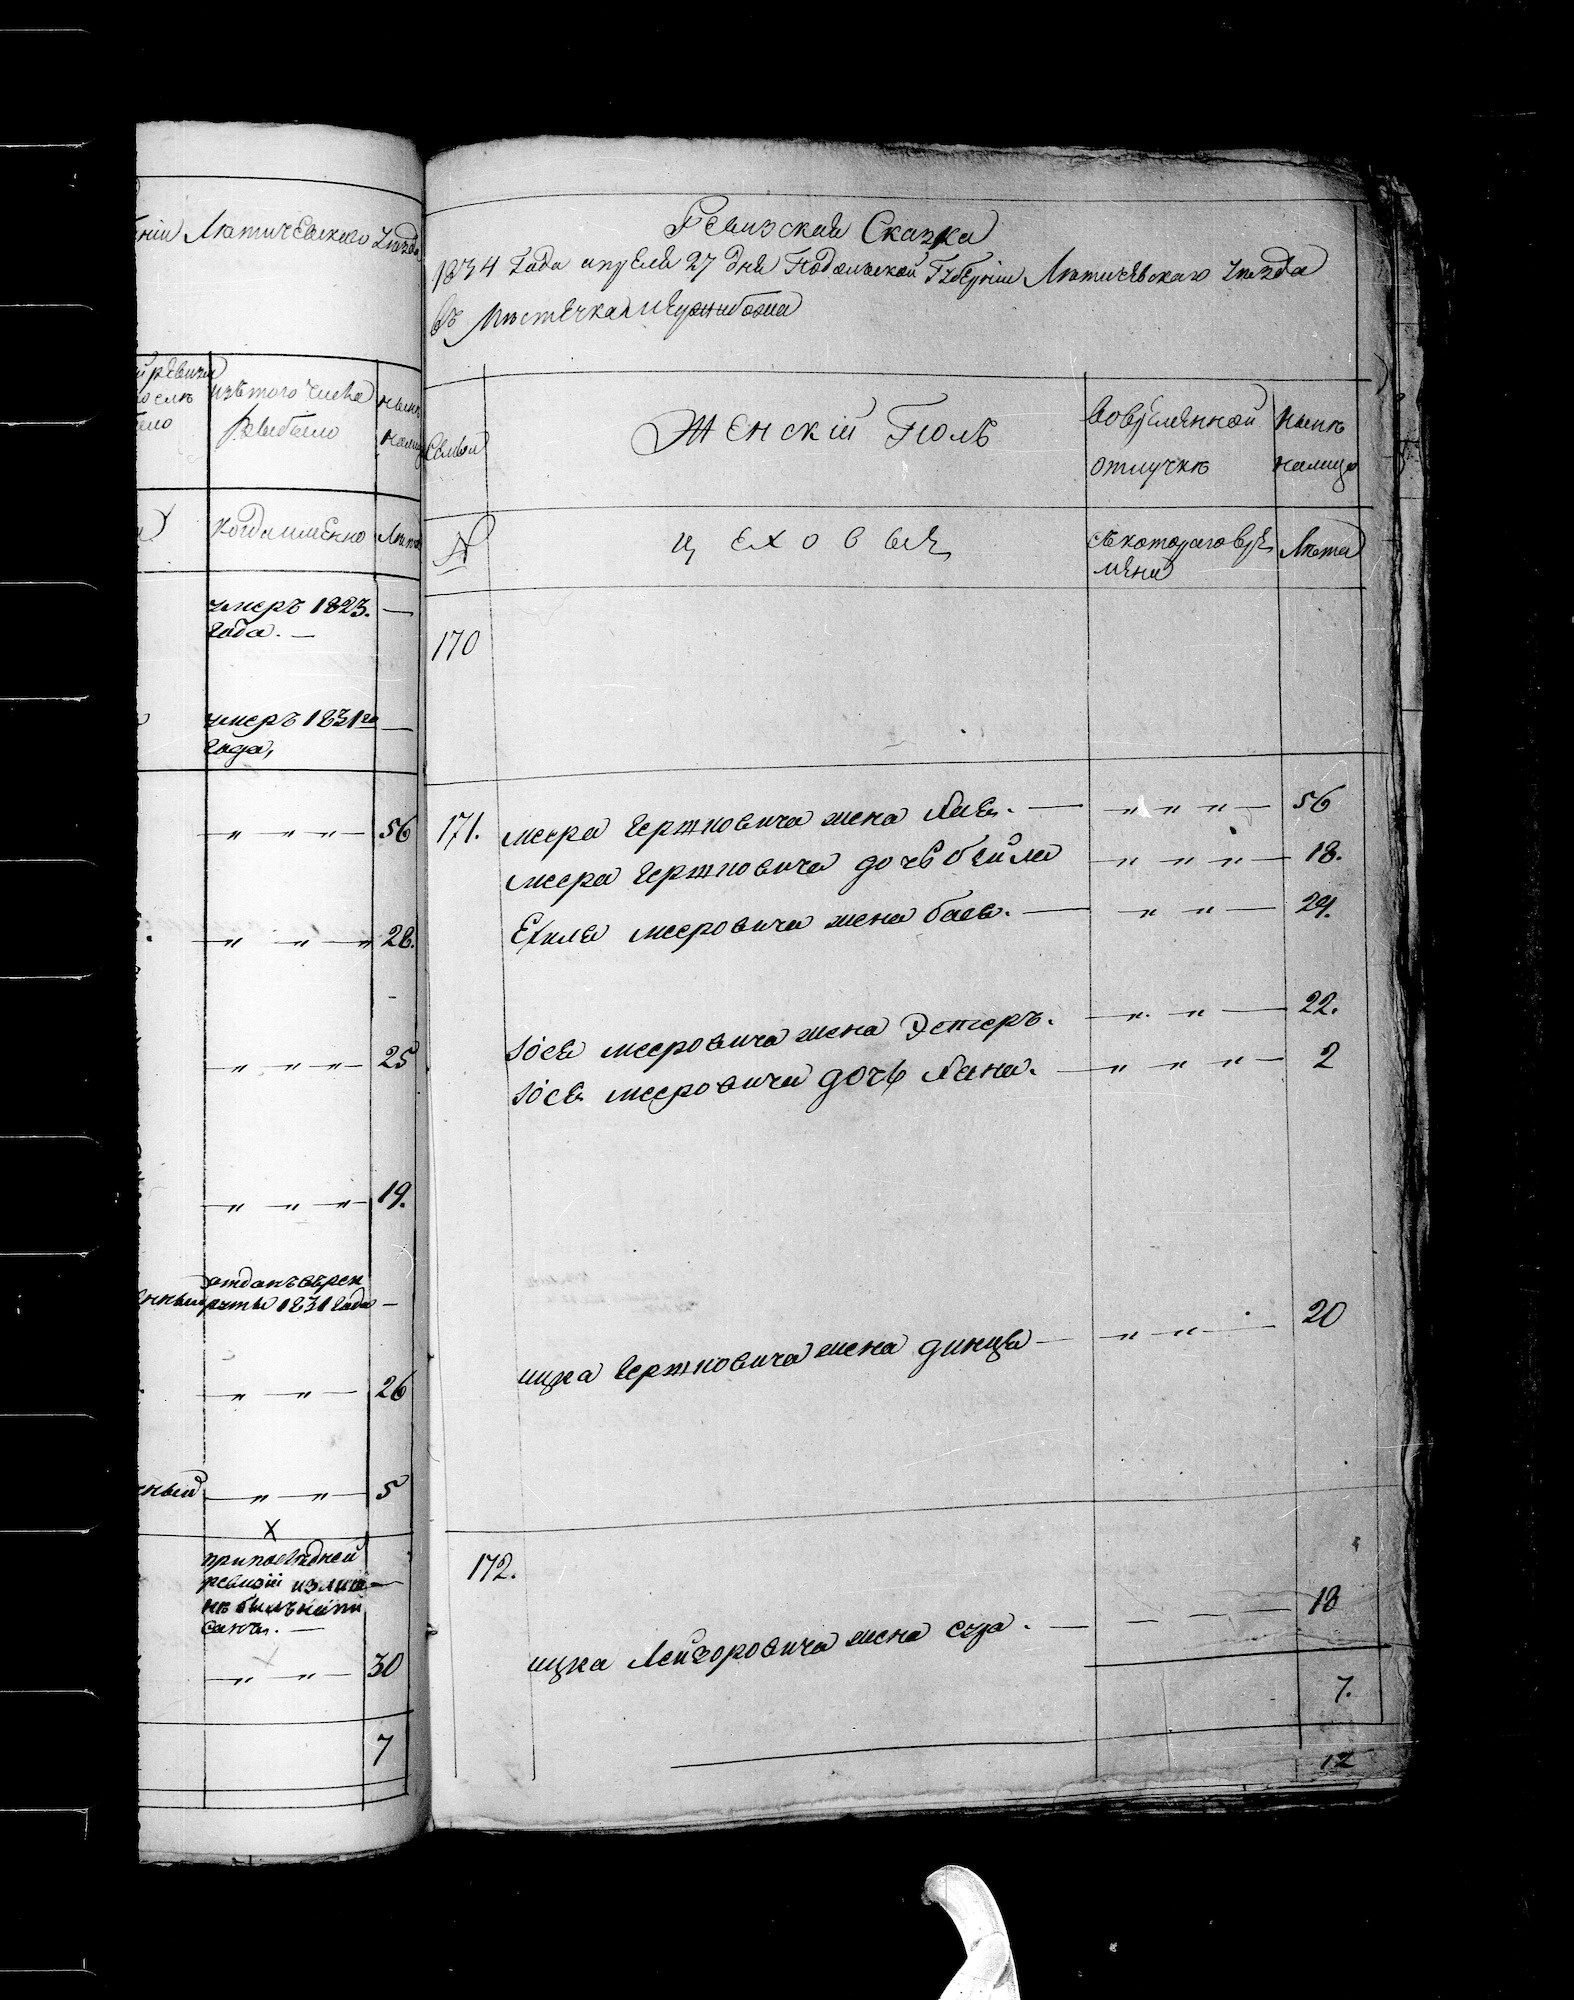 ніи Летичевскаго уезда
ревизіи
изътого числа
выбыло
ныне
когда именно
умеръ 1823.
года. —
умеръ 1831го
года,
" " " — 56
" " " 28.
" " " — 25
" " " 19.
отданъ въ рек
руты 1831 года —
" " — 26
" " — 5
х
припоследней
ревизіи
" " — 30
7
Ревизская Сказка
1834 Года апреля 27 дня Подольской Губерніи Летичевскаго уезда
въ Местечка Межибожа
Семьи
Женскій Полъ
Вовременной
отлучке
Ныне
налицо
№
цеховые
съкотораго вре
мени
Лета
170
171. Меера Гершковича жена Хая. — " " " — 56
Меера Гершковича дочь бейла " " " — 18.
Ехиля Мееровича жена бася. — " " — 24.
Іося Мееровича жена Эстеръ. " " — 22.
Іося Мееровича дочь Хана. — " " " — 2
ицка Гершковича жена динця — " " — 20
172.
ицка Лейзоровича жена сура. — — — — 18
7.
12